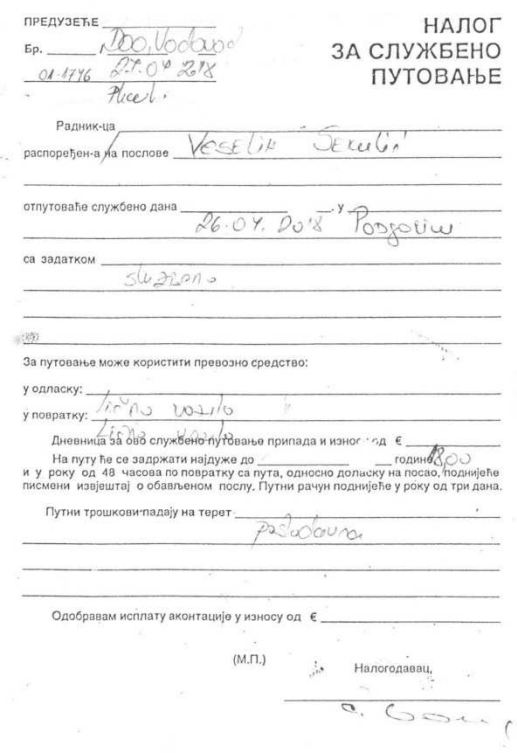 ПРЕДУЗЕЋЕ
Doo, Vodovod
Бр.
01-1776 27.04 2018
НАЛОГ
ЗА СЛУЖБЕНО
ПУТОВАЊЕ
Радник-ца
распоређен-а на послове Veselin Sekulić
отпутоваће службено дана у
26.04. 2018 Podgoricu
са задатком
službeno
За путовање може користити превозно средство:
у одласку: lično vozilo
у повратку: lično vozilo
Дневница за ово службено путовање припада и износ од €
На путу ће се задржати најдуже до године 18,00
и у року од 48 часова по повратку са пута, односно доласку на посао, поднијеће
писмени извјештај о обављеном послу. Путни рачун поднијеће у року од три дана.
Путни трошкови падају на терет
poslodavca
Одобравам исплату аконтације у износу од €
(М.П.)
Налогодавац,